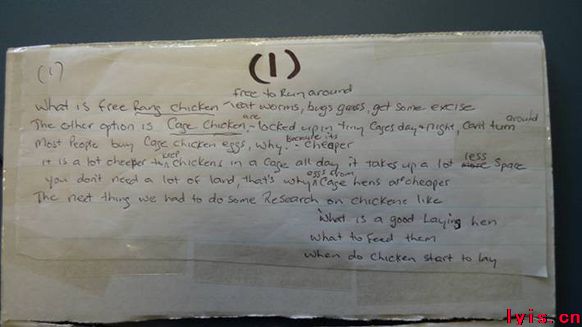 (1)
(1)
free to Run around
What is free Rang chicken eat worms, bugs grass, get some excise
are around
The other option is Cage Chicken - locked up in tiny cages day + night, can't turn
because its
Most People buy Cage chicken eggs, why? - cheaper
keep less
it is a lot cheeper chickens in a cage all day it takes up a lot more space
eggs from
you don't need a lot of land, that's why cage hens are cheaper
The next thing we had to do some Research on chickens like
What is a good Laying hen
What to Feed them
when do chicken start to lay
lyis.cn